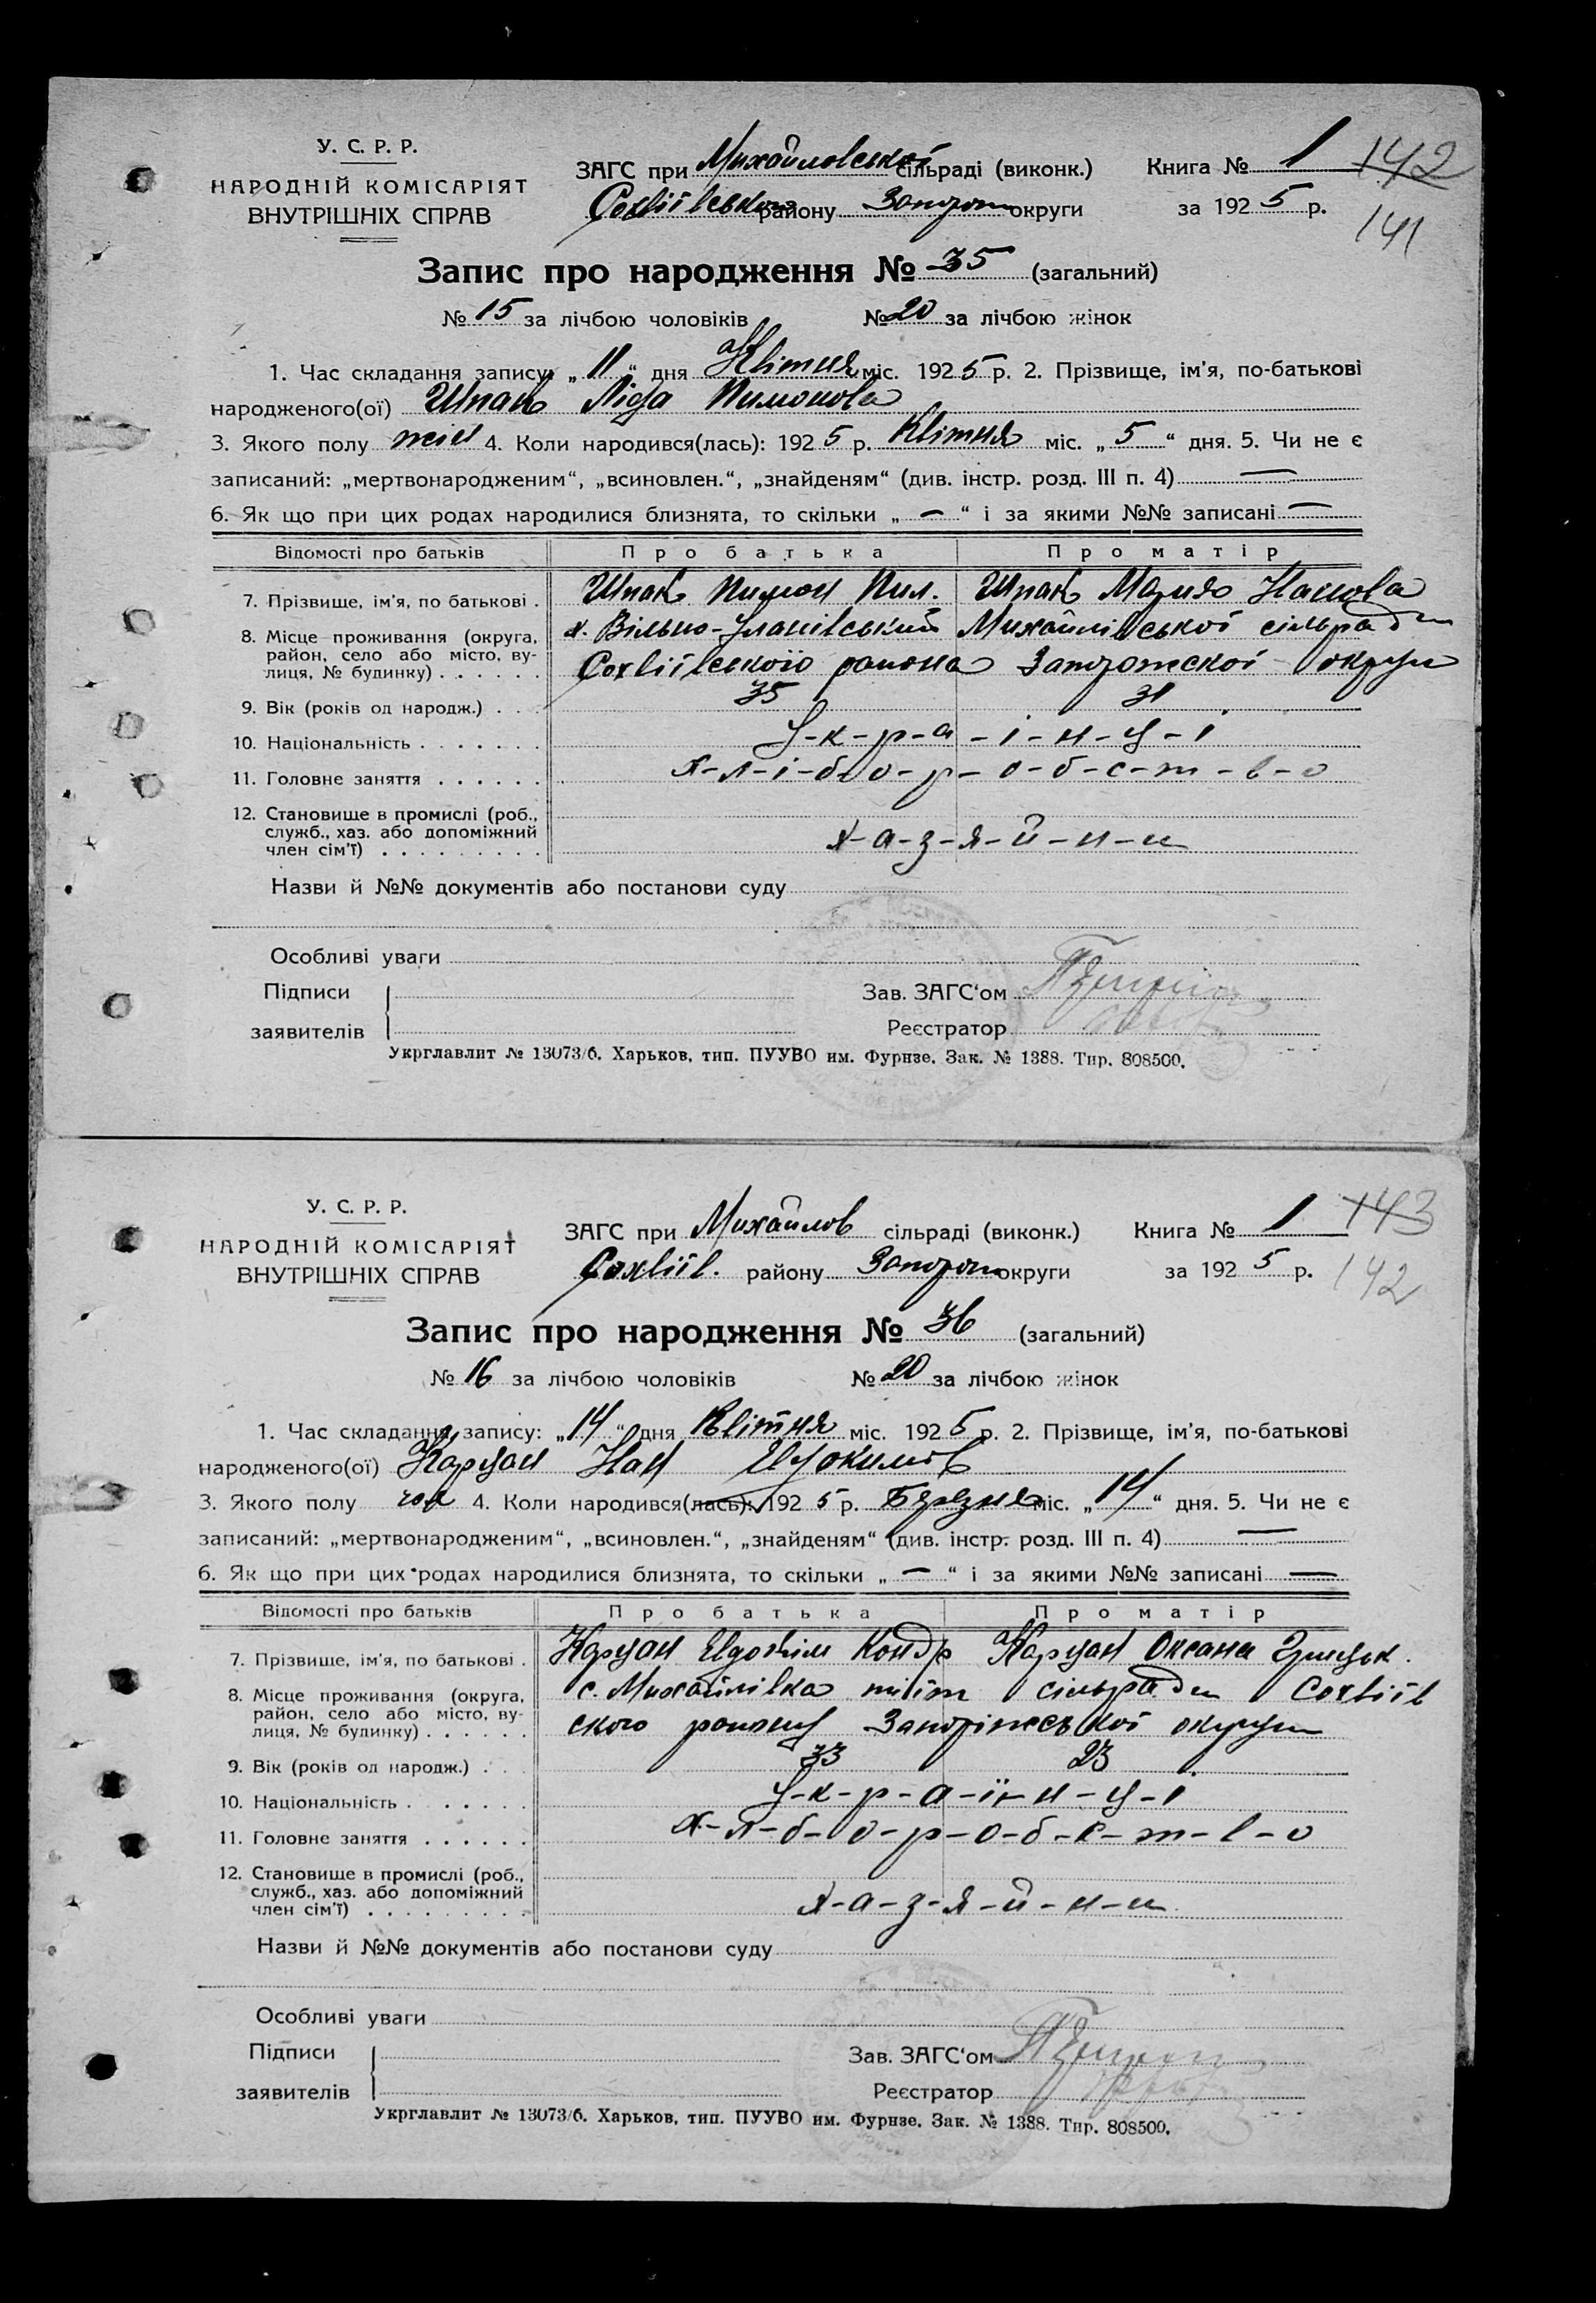 У. С. Р. Р.
НАРОДНІЙ КОМІСАРІЯТ
ВНУТРІШНІХ СПРАВ
ЗАГС при Михайловської сільраді (виконк.) Книга № 1 142
району Запорож округи за 1925 р. 141
Запис про народження № 35 (загальний)
№ 15 за лічбою чоловіків № 20 за лічбою жінок
1. Час складання запису: „11“ дня Квітня міс. 1925 р. 2. Прізвище, ім'я, по-батькові
народженого(ої) Шпак Ліда Пимонова
3. Якого полу жін 4. Коли народився(лась): 1925 р. Квітня міс. „5“ дня. 5. Чи не є
записаний: „мертвонародженим“, „всиновлен.“, „знайденям“ (див. інстр. розд. III п. 4) —
6. Як що при цих родах народилися близнята, то скільки „—“ і за якими №№ записані —
Відомості про батьків Про батька Про матір
7. Прізвище, ім'я, по батькові . Шпак Пимон Пил. Шпак Мария
8. Місце проживання (округа, район, село або місто, вулиця, № будинку) . . . . . . х. Вільно-Уланівський Михайлівської сільради
района Запорожской округи
9. Вік (років од народж.) . . . 35 31
10. Національність . . . . . . . У-к-р-а-і-н-ц-і
11. Головне заняття . . . . . . х-л-і-б-о-р-о-б-с-т-в-о
12. Становище в промислі (роб., служб., хаз. або допоміжний член сім'ї) . . . . . . . . . х-а-з-я-й-н-и
Назви й №№ документів або постанови суду
Особливі уваги
Підписи
заявителів
Зав. ЗАГС'ом
Реєстратор
Укрглавлит № 13073/6. Харьков, тип. ПУУВО им. Фурнзе. Зак. № 1388. Тир. 808500.
У. С. Р. Р.
НАРОДНІЙ КОМІСАРІЯТ
ВНУТРІШНІХ СПРАВ
ЗАГС при Михайлов сільраді (виконк.) Книга № 1 143
району Запорож округи за 1925 р. 142
Запис про народження № 36 (загальний)
№ 16 за лічбою чоловіків № 20 за лічбою жінок
1. Час складання запису: „14“ дня Квітня міс. 1925 р. 2. Прізвище, ім'я, по-батькові
народженого(ої) Карцан
3. Якого полу чол 4. Коли народився(лась): 1925 р. Березня міс. „14“ дня. 5. Чи не є
записаний: „мертвонародженим“, „всиновлен.“, „знайденям“ (див. інстр. розд. III п. 4) —
6. Як що при цих родах народилися близнята, то скільки „—“ і за якими №№ записані —
Відомості про батьків Про батька Про матір
7. Прізвище, ім'я, по батькові . Карцан Евдоким Кондр Карцан Оксана Грицьк.
8. Місце проживання (округа, район, село або місто, вулиця, № будинку) . . . . . . с. Михайлівка сільради
ского району Запоріжської округи
9. Вік (років од народж.) . . . 33 23
10. Національність . . . . . . . У-к-р-а-ї-н-ц-і
11. Головне заняття . . . . . . х-л-б-о-р-о-б-с-т-в-о
12. Становище в промислі (роб., служб., хаз. або допоміжний член сім'ї) . . . . . . . . . х-а-з-я-й-н-и
Назви й №№ документів або постанови суду
Особливі уваги
Підписи
заявителів
Зав. ЗАГС'ом
Реєстратор
Укрглавлит № 13073/6. Харьков, тип. ПУУВО им. Фурнзе. Зак. № 1388. Тир. 808500.